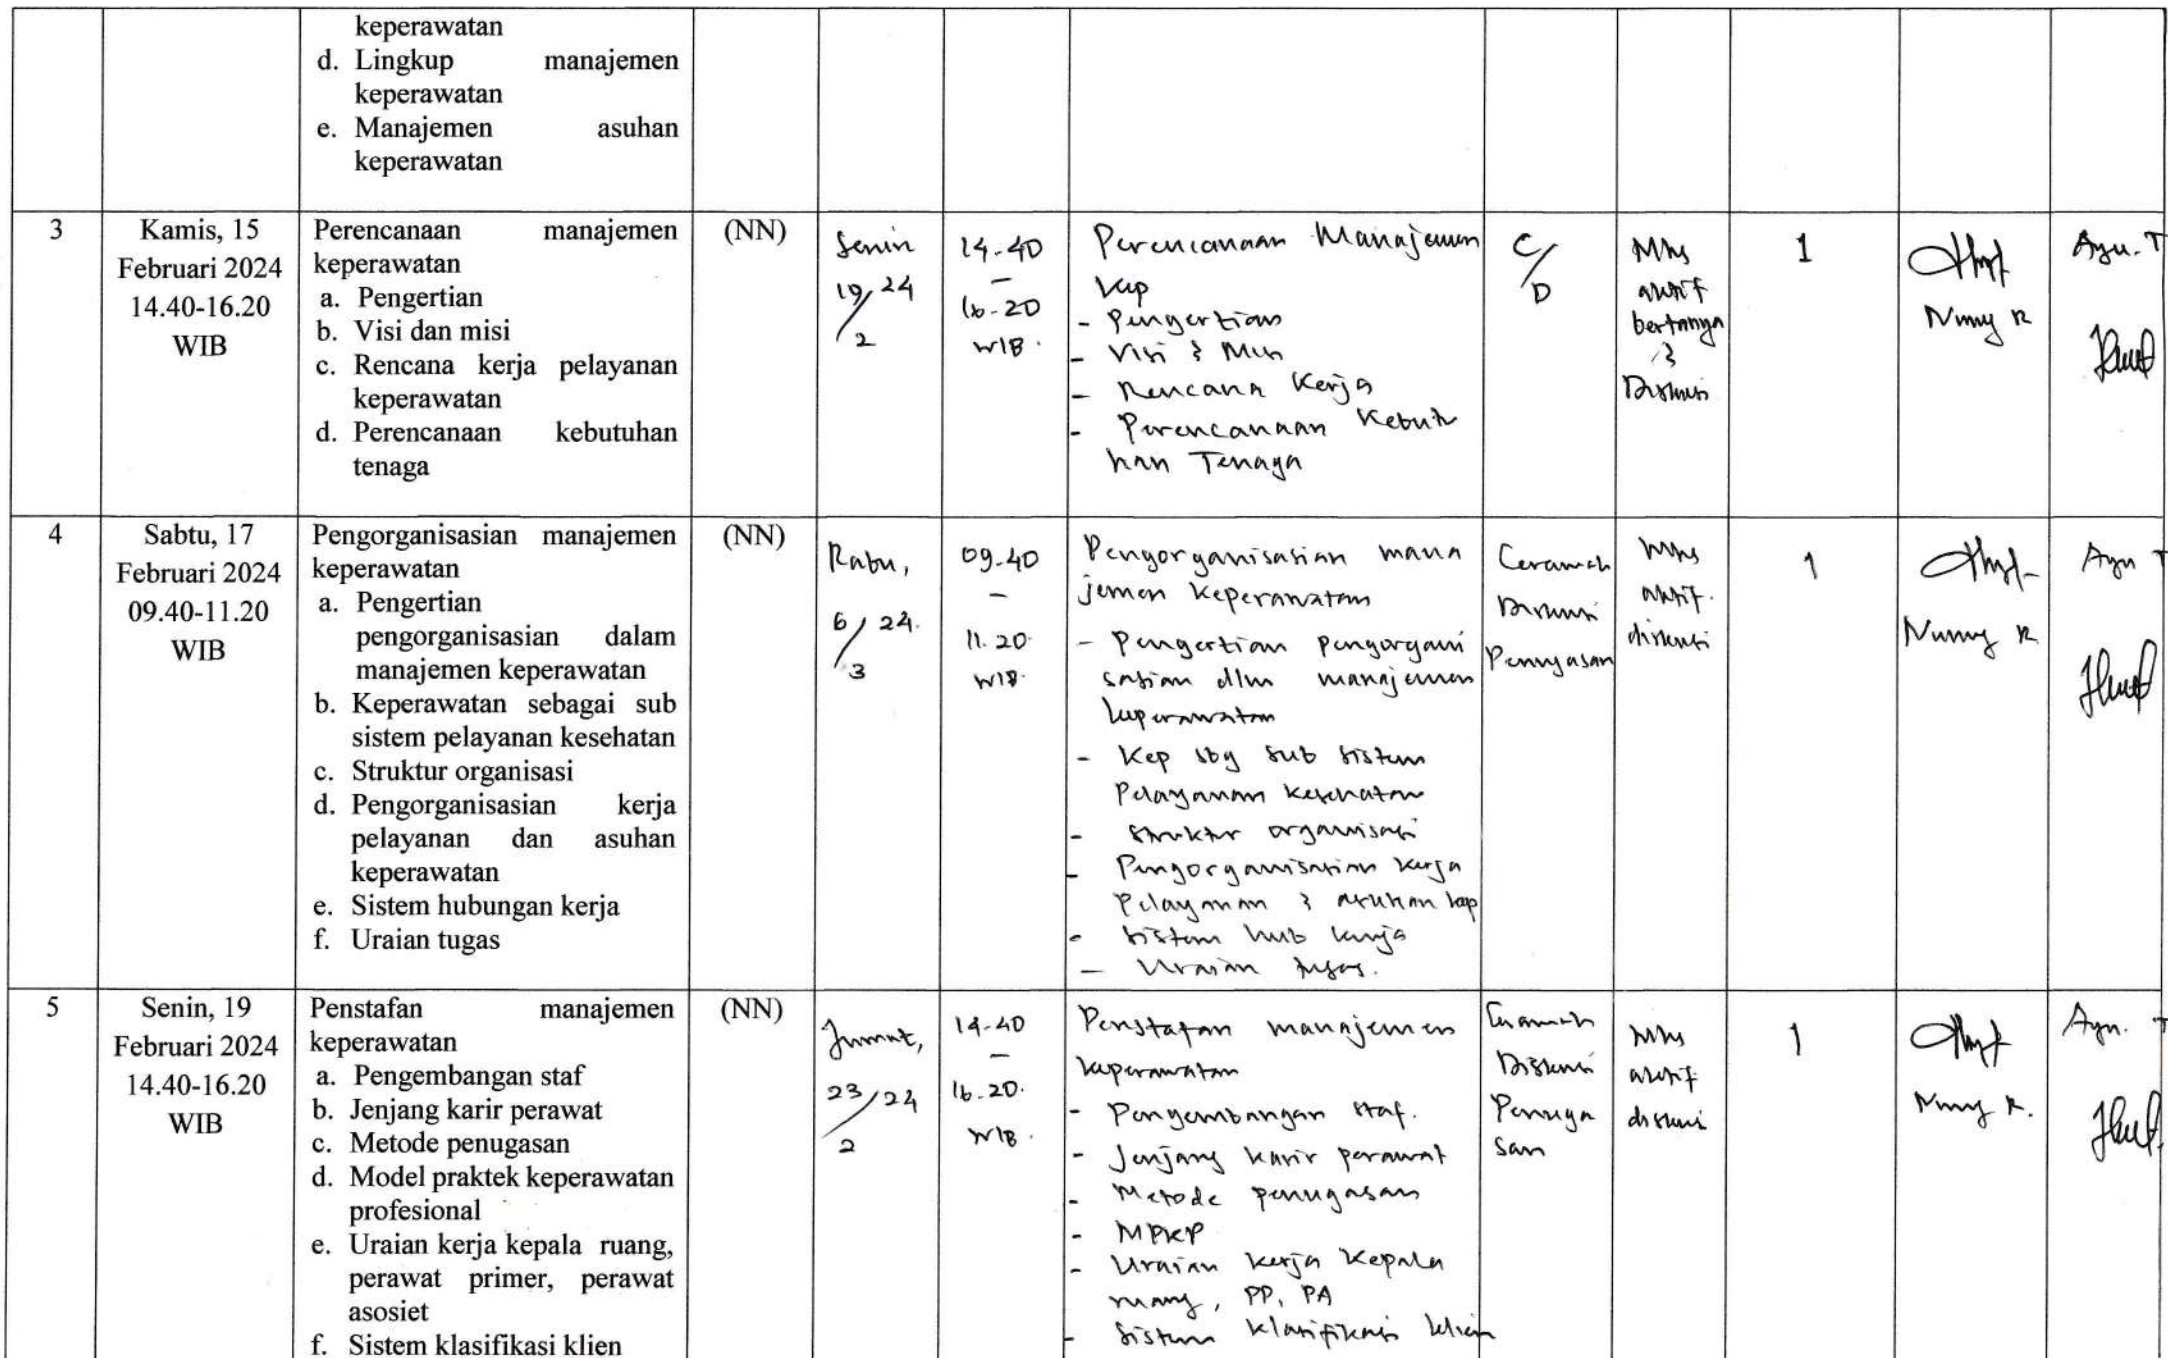 keperawatan
d. Lingkup manajemen
keperawatan
e. Manajemen asuhan
keperawatan
3
Kamis, 15
Februari 2024
14.40-16.20
WIB
Perencanaan manajemen
keperawatan
a. Pengertian
b. Visi dan misi
c. Rencana kerja pelayanan
keperawatan
d. Perencanaan kebutuhan
tenaga
(NN)
Senin
19/24
2
14-40
–
16-20
WIB.
Perencanaan Manajemen
Kep
- Pengertian
- Visi & Misi
- Rencana Kerja
- Perencanaan Kebutu
han Tenaga
C/D
Mhs
aktif
bertanya
&
Diskusi
1
Nuny R
Ayu. T
4
Sabtu, 17
Februari 2024
09.40-11.20
WIB
Pengorganisasian manajemen
keperawatan
a. Pengertian
pengorganisasian dalam
manajemen keperawatan
b. Keperawatan sebagai sub
sistem pelayanan kesehatan
c. Struktur organisasi
d. Pengorganisasian kerja
pelayanan dan asuhan
keperawatan
e. Sistem hubungan kerja
f. Uraian tugas
(NN)
Rabu,
6/24.
3
09-40
–
11.20
WIB.
Pengorganisasian mana
jemen Keperawatan
- Pengertian pengorgani
sasian dlm manajemen
keperawatan
- Kep sbg sub sistem
Pelayanan Kesehatan
- Struktur organisasi
- Pengorganisasian Kerja
Pelayanan & asuhan kep
- Sistem hub kerja
- Uraian tugas.
Ceramah
Diskusi
Penugasan
Mhs
aktif.
diskusi
1
Nuny R
Ayu T
5
Senin, 19
Februari 2024
14.40-16.20
WIB
Penstafan manajemen
keperawatan
a. Pengembangan staf
b. Jenjang karir perawat
c. Metode penugasan
d. Model praktek keperawatan
profesional
e. Uraian kerja kepala ruang,
perawat primer, perawat
asosiet
f. Sistem klasifikasi klien
(NN)
Jumat,
23/24
2
14-40
–
16-20.
WIB.
Penstafan manajemen
keperawatan
- Pengembangan staf.
- Jenjang karir perawat
- Metode penugasan
- MPKP
- Uraian kerja Kepala
ruang, PP, PA
- Sistem klasifikasi klien
Ceramah
Diskusi
Penuga
san
Mhs
aktif
diskusi
1
Nuny R.
Ayu. T